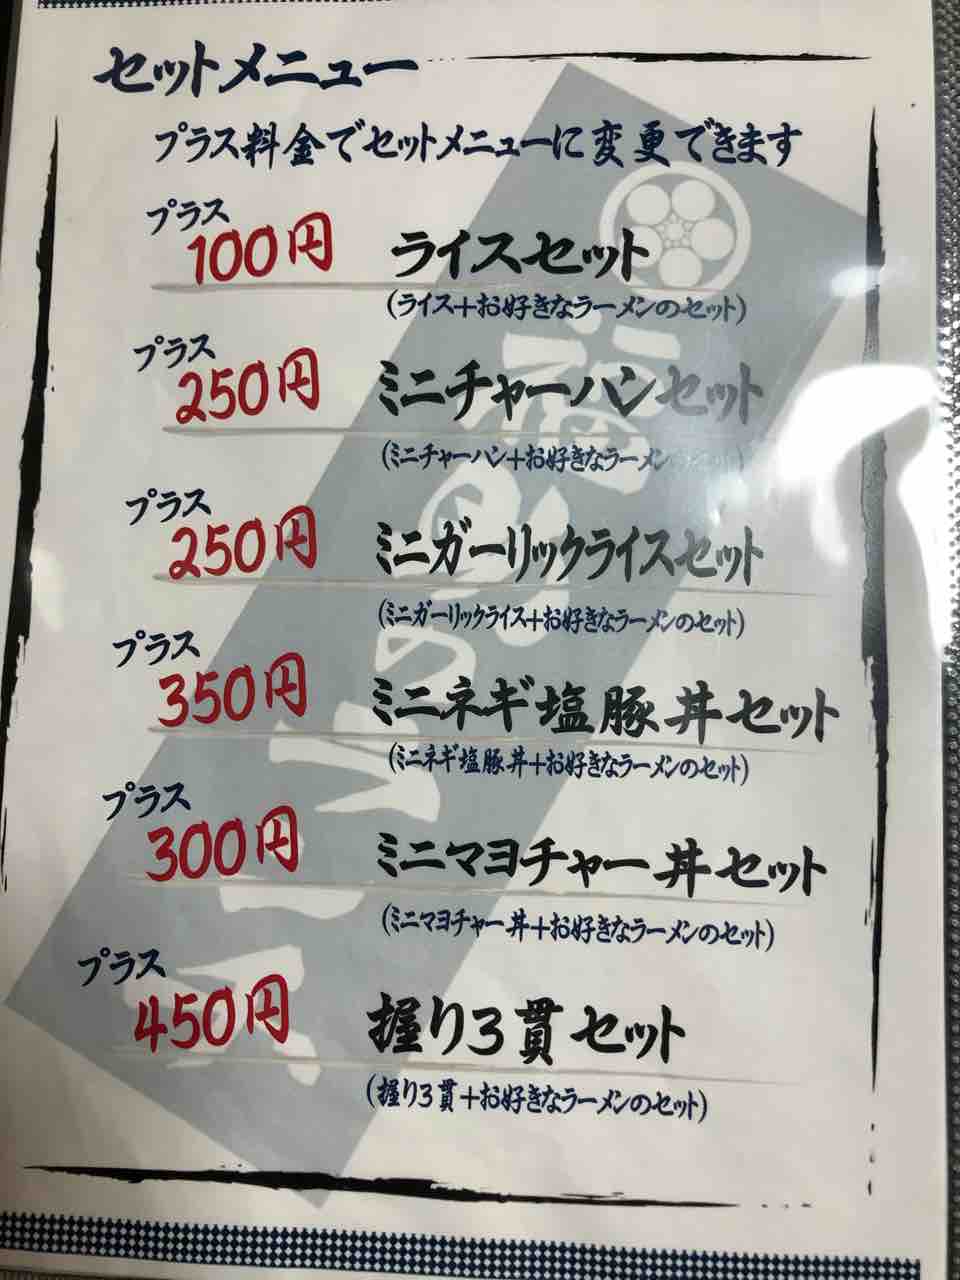 セットメニュー
プラス料金でセットメニューに変更できます
プラス
100円 ライスセット
(ライス+お好きなラーメンのセット)
プラス
250円 ミニチャーハンセット
(ミニチャーハン+お好きなラーメンのセット)
プラス
250円 ミニガーリックライスセット
(ミニガーリックライス+お好きなラーメンのセット)
プラス
350円 ミニネギ塩豚丼セット
(ミニネギ塩豚丼+お好きなラーメンのセット)
プラス
300円 ミニマヨチャー丼セット
(ミニマヨチャー丼+お好きなラーメンのセット)
プラス
450円 握り3貫セット
(握り3貫+お好きなラーメンのセット)